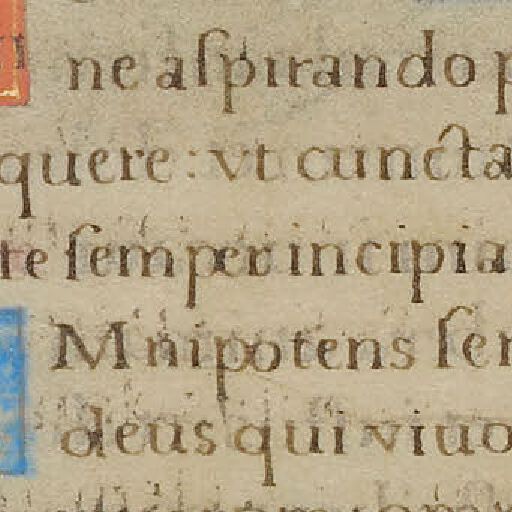 ne aſpirando p
quere: vt cuncta
te ſemper incipia
Mnipotens ſem
deus qui viuo